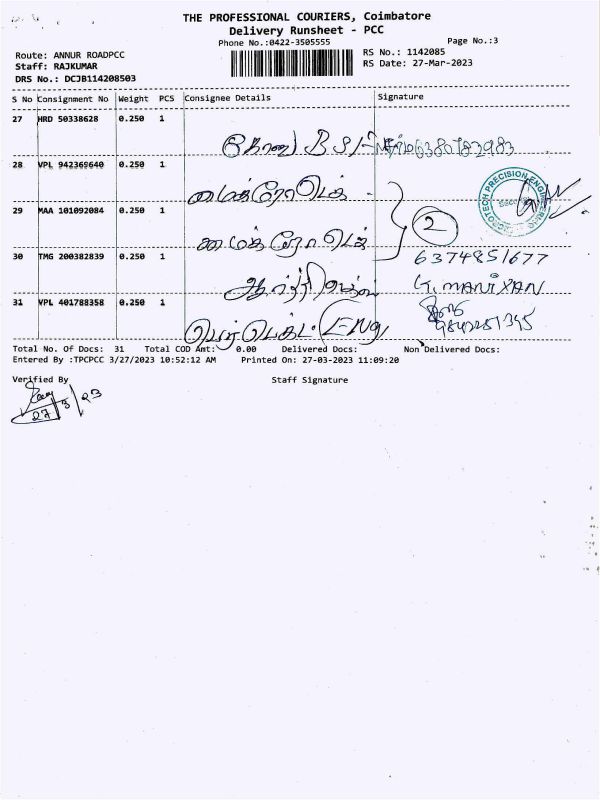 THE PROFESSIONAL COURIERS, Coimbatore
Delivery Runsheet - PCC
Phone No.:0422-3505555 Page No.:3
Route: ANNUR ROADPCC RS No.: 1142085
Staff: RAJKUMAR RS Date: 27-Mar-2023
DRS No.: DCJB114208503
S No Consignment No Weight PCS Consignee Details Signature
27 HRD 50338628 0.250 1
BSI
28 VPL 942365640 0.250 1
மைக்ரோடெக்
29 MAA 101092084 0.250 1
மைக்ரோடெக் 2
PRECISION ENGINEERING
30 TMG 200382839 0.250 1 6374851677
G. MANIXAN
31 VPL 401788358 0.250 1
பெர்டெக்ட். Eng
Total No. Of Docs: 31 Total COD Amt: 0.00 Delivered Docs: Non Delivered Docs:
Entered By :TPCPCC 3/27/2023 10:52:12 AM Printed On: 27-03-2023 11:09:20
Verified By Staff Signature
27/3/23